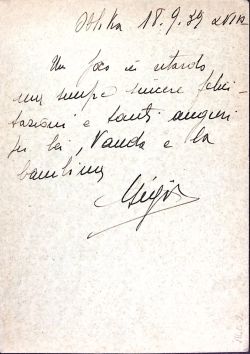 18.9.39 XVII
Un poco in ritardo
ma sempre sincere felici-
tazioni e tanti auguri
per lei, Vanda e la
bambina